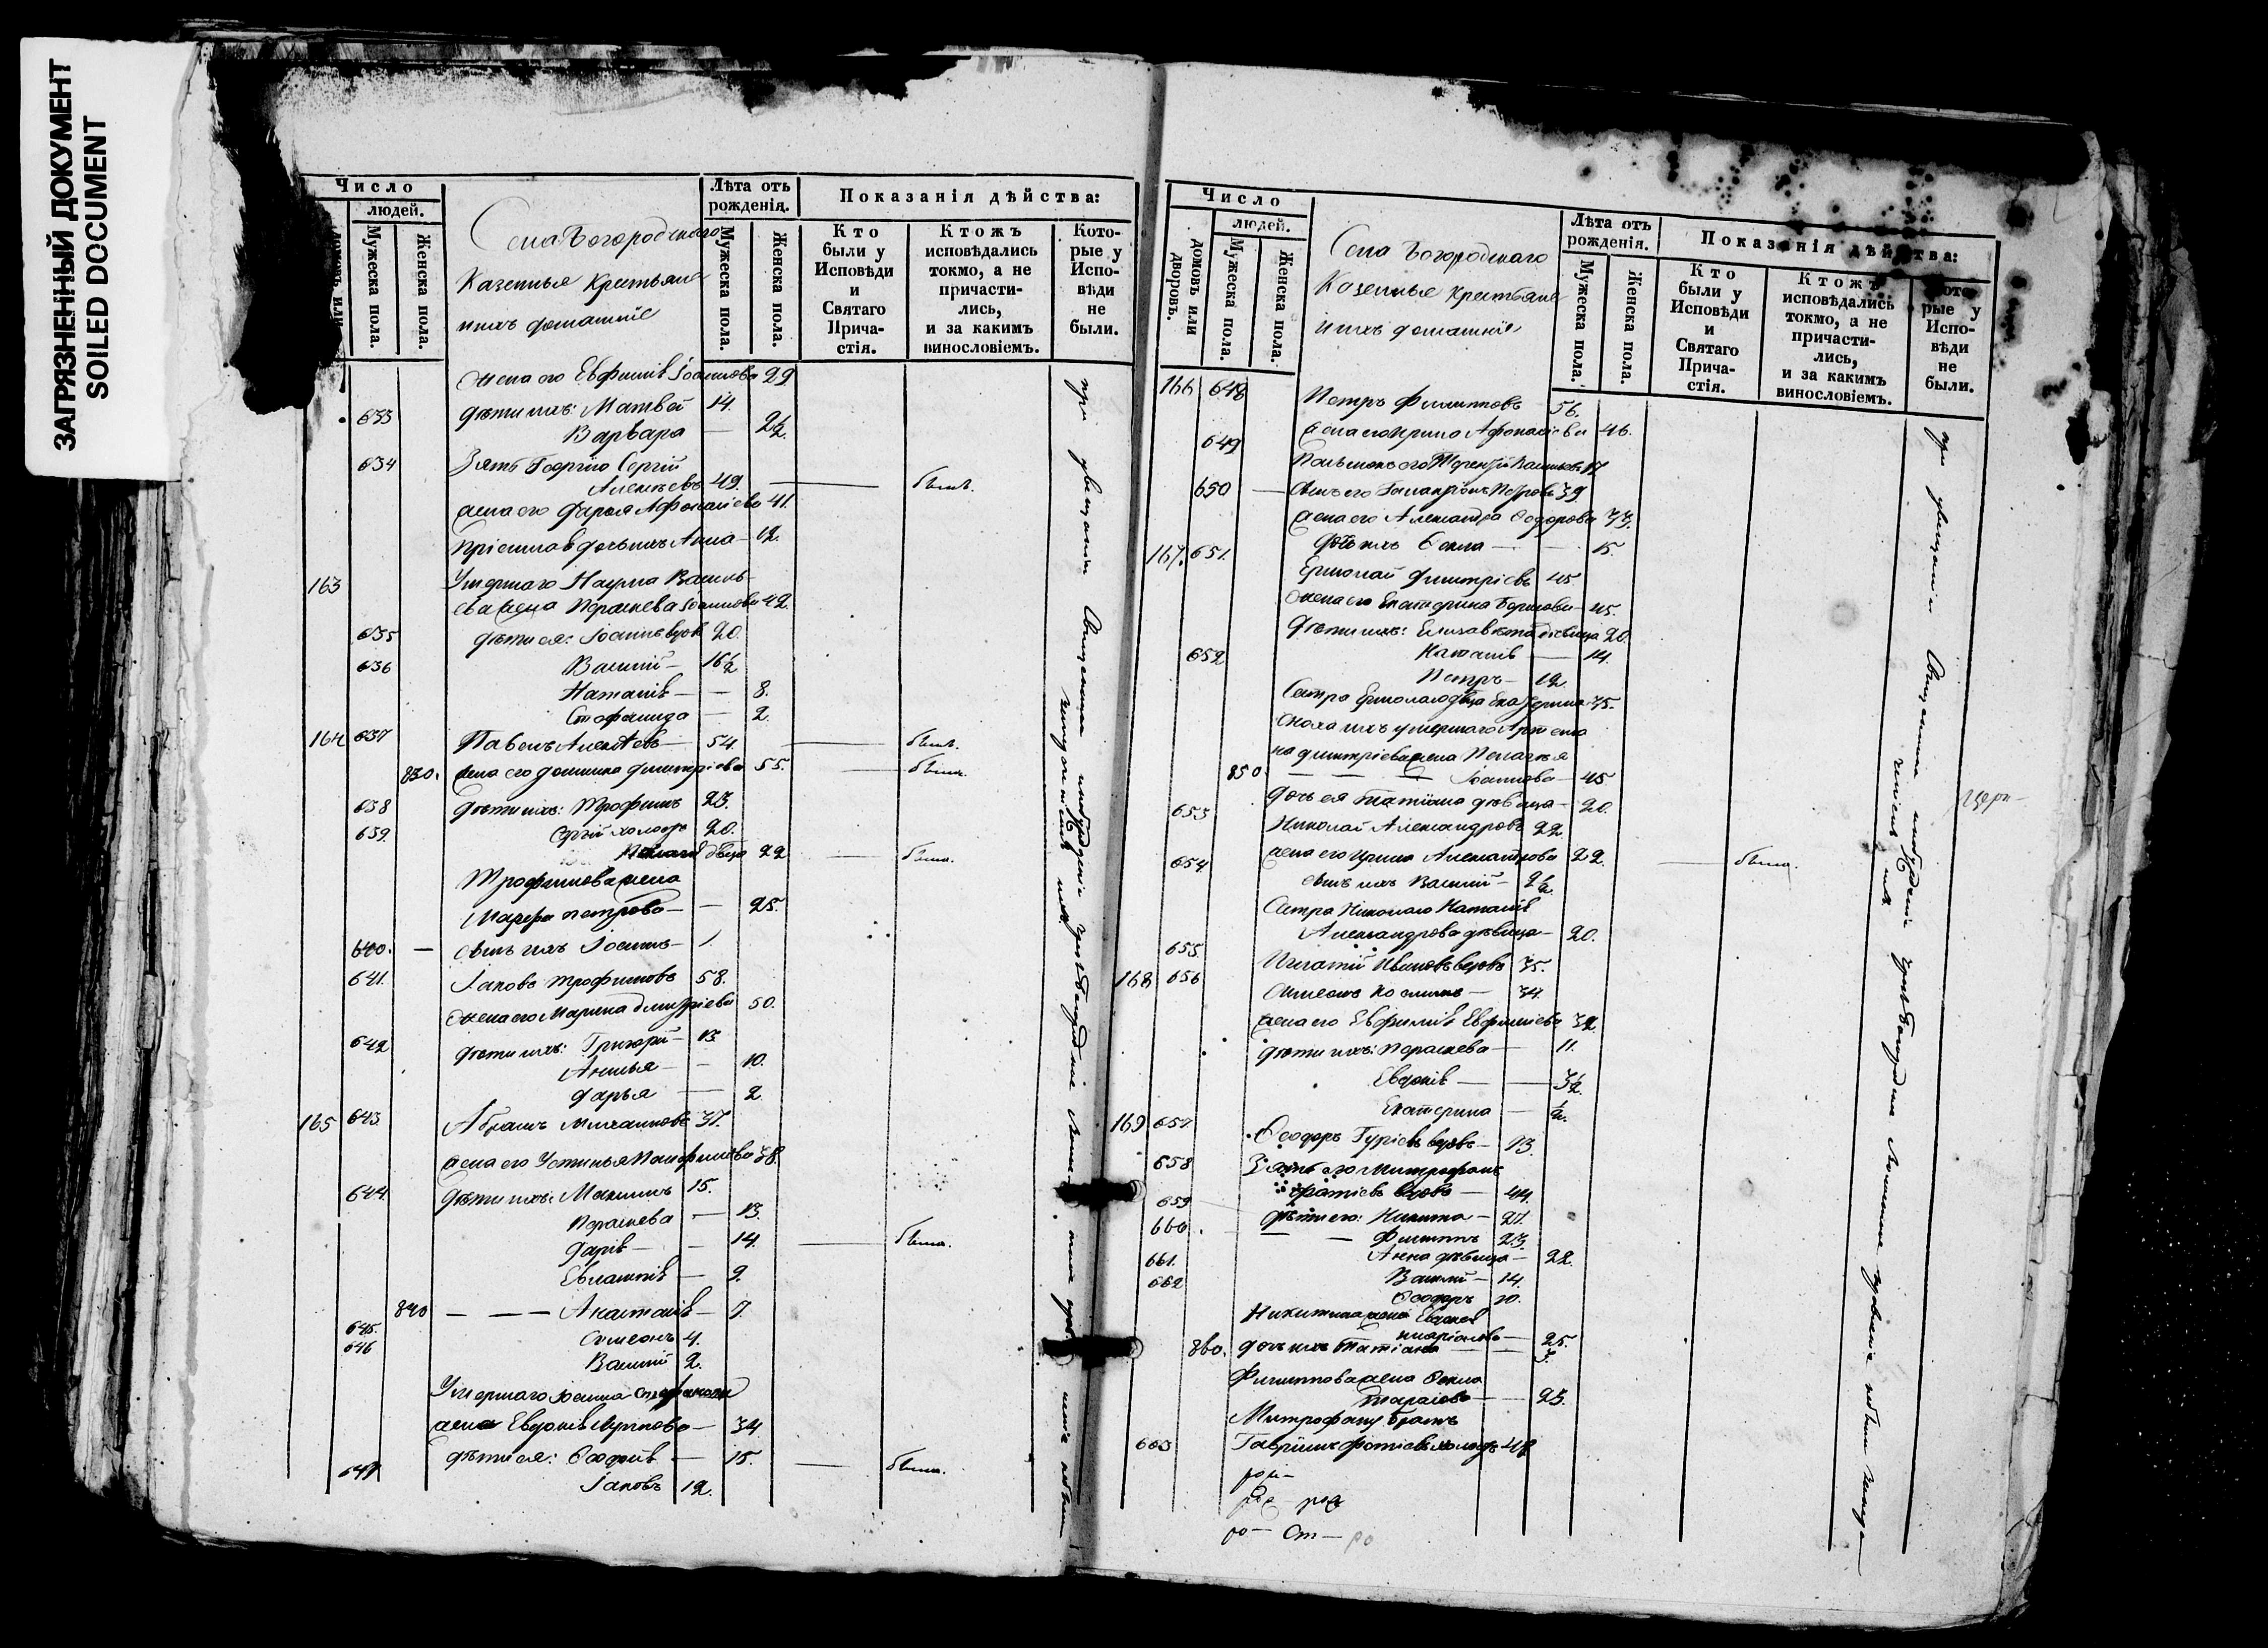 ЗАГРЯЗНЕННЫЙ ДОКУМЕНТ
SOILED DOCUMENT
Число
людей.
домовъ или
Мужеска пола.
Женска пола.
Села Богородскаго
Казенныя Крестьяне
и ихъ домашніе
Лѣта отъ рожденія.
Мужеска пола.
Женска пола.
Показанія дѣйства:
Кто были у Исповѣди и Святаго Прича-стія.
Ктожъ исповѣдались токмо, а не причасти-лись, и за какимъ винословіемъ.
Кото-рые у Испо-вѣди не были.
жена его Евфимія Іоаннова 29
633 дѣти ихъ: Матвей 14.
Варвара — 2½.
634 Зять Георгію Сергій
Алексѣевъ 49. — былъ.
жена его Дарья Афонасіева 41.
дочь ихъ Анна — 12.
163 Умершаго Наума Василь-
ева жена Парасκева Іоаннова 42.
635 дѣти ея: Іоаннъ вдовъ 20.
636 Василій — 16½
Наталія — — 8.
Стефанида — 2.
164 637 Павелъ Алексѣевъ — 54. — былъ.
830. жена его Домника Димитріева 55. — была.
638 дѣти ихъ: Трофимъ 23.
639. Сергій холостъ 20.
Пелагія дѣвица 22 — была.
Трофимова жена
Марфа Петрова — — 25.
640. — сынъ ихъ Іосифъ — 1.
641. Іаковъ Трофимовъ 58.
жена его Марина Димитріева 50.
642 дѣти ихъ: Григорій — 13
Анисья — — 10.
Дарья — 2
165 643. Абрамъ Михаиловъ 37.
жена его Устинья Панфилова 38.
644 дѣти ихъ: Максимъ 15.
Парасκева — 13.
Дарія — — 14. — была.
Евлампія — 9.
840 — — — Анастасія — 7.
645. Симеонъ 4.
646 Василій 2.
Умершаго Іоанна Стефанова
жена Евдокія — 34
дѣти ея: Ѳеодосія — 15. — была.
647 Іаковъ 12.
Число
людей.
домовъ или дворовъ.
Мужеска пола.
Женска пола.
Села Богородскаго
Казенныя крестьяне
и ихъ домашніе
Лѣта отъ рожденія.
Мужеска пола.
Женска пола.
Показанія дѣйства:
Кто были у Исповѣди и Святаго Прича-стія.
Ктожъ исповѣдались токмо, а не причасти-лись, и за какимъ винословіемъ.
Кото-рые у Испо-вѣди не были.
166 648 Петръ Филипповъ 56.
жена его Ирина Афонасіева 46.
649 его Терентій Васильевъ 17
650 — сынъ его Галактіонъ Петровъ 39
жена его Александра Ѳедорова 33.
дочь ихъ Ѳекла — — 15.
167. 651. Ермолай Димитріевъ 45
жена его Екатерина Борисова — 45.
дѣти ихъ: Елизавета дѣвица 20.
Наталія — 14.
652 Петръ — 12
Сестра Ермолаю дѣвица Екатерина 35.
Сноха ихъ умершаго Артемо
на Димитріева жена Пелагея
850. — — — Іоаннова — 45
дочь ея Татіана дѣвица — 20.
653 Николай Александровъ 22
жена его Ирина Алексантрова 22. — была.
654 сынъ ихъ Василій — 2½.
Сестра Николаю Наталія
Александрова дѣвица — 20.
655. Игнатій Ивановъ вдовъ 35.
168 656 Симеонъ Козьминъ — 34.
жена его Евфимія Евфиміева 32.
дѣти ихъ: Парасκева — 11.
Евдокія — — 3½.
Екатерина — ½.
169 657. Ѳеодоръ Гуріевъ вдовъ — 73.
658 Зять его Митрофанъ
Фотіевъ вдовъ — 44.
659 дѣти его: Никита — 27.
660. — — Филиппъ 23.
Анна дѣвица — 22.
661. Василій — 14.
662 Ѳеодоръ 10.
Никитина жена Евдокія
Иларіонова — 25.
860. дочь ихъ Татіана — — 3.
Филиппова жена Ѳекла
Тарасова — — 23.
Митрофану братъ
663 Гавріилъ Фотіевъ холостъ 48